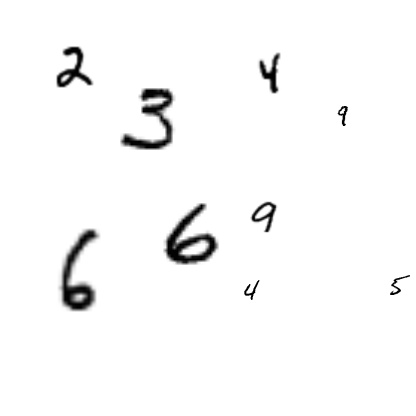 2 3 4 9
6 6 9
4 5